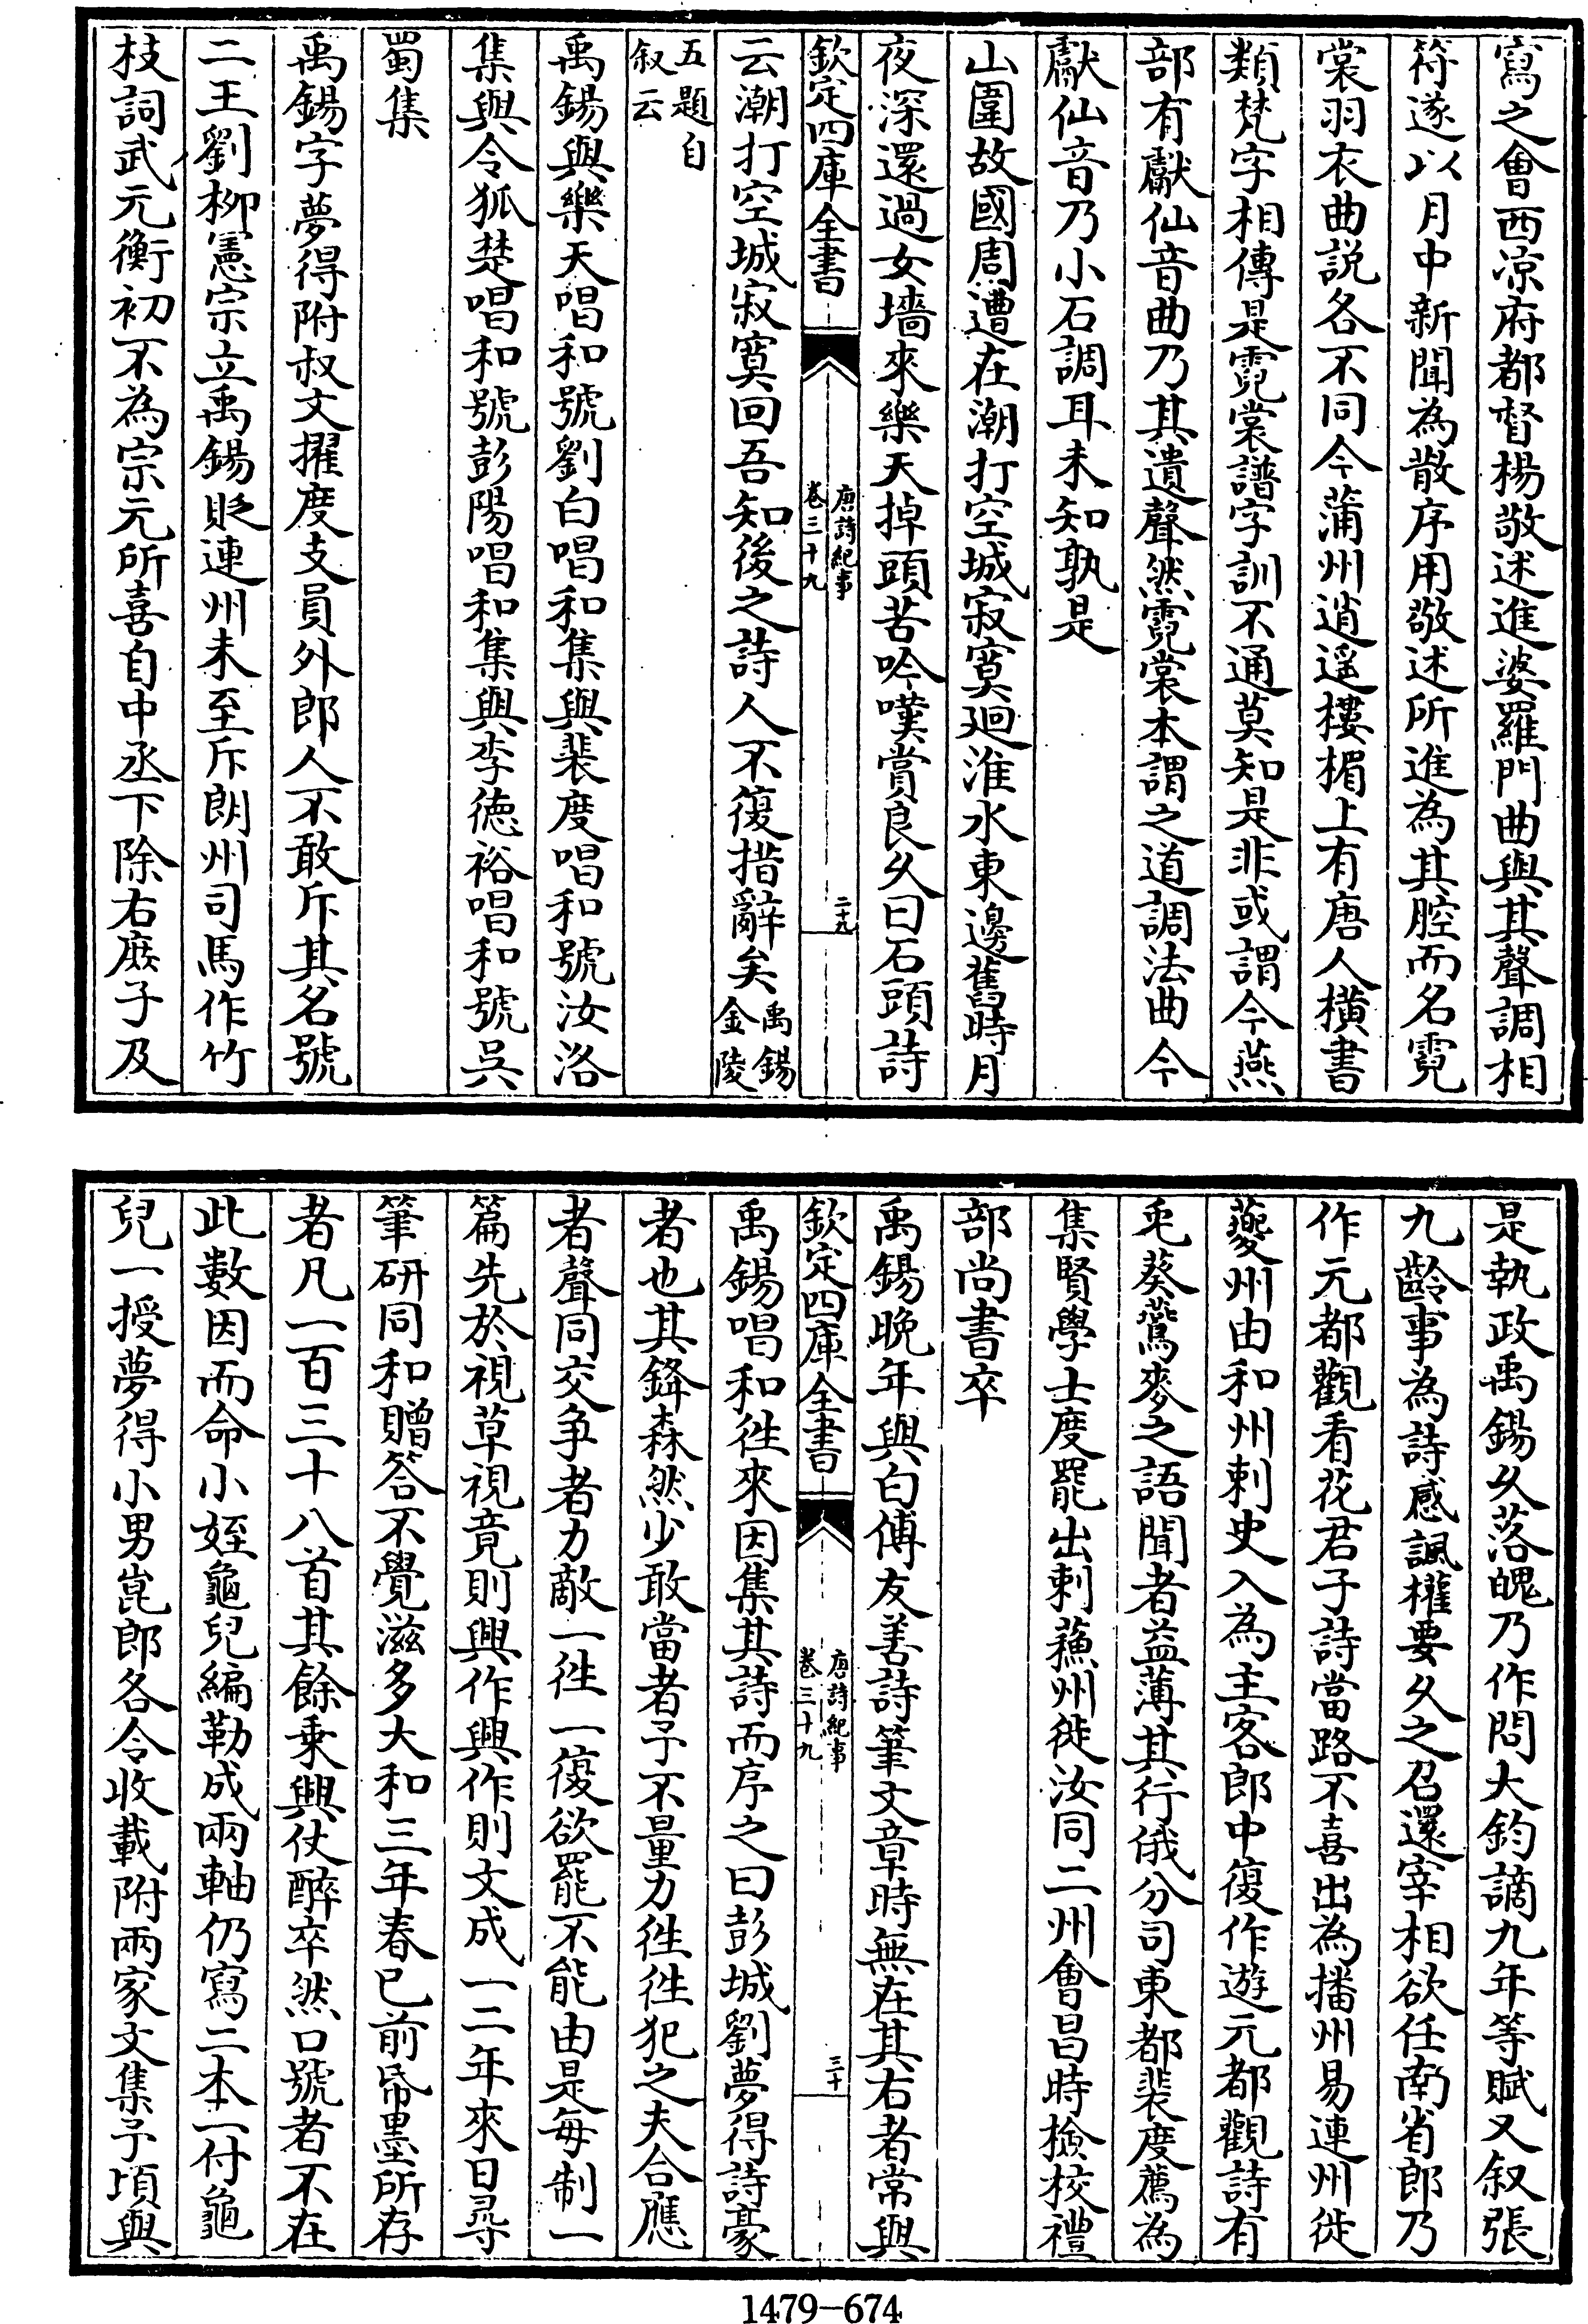 寫之會西涼府都督楊敬述進婆羅門曲與其聲調相
符遂以月中新聞為散序用敬述所進為其腔而名霓
裳羽衣曲説各不同今蒲州逍遥樓楣上有唐人横書
類梵字相傳是霓裳譜字訓不通莫知是非或謂今燕
部有獻仙音曲乃其遺聲然霓裳本謂之道調法曲今
獻仙音乃小石調耳未知孰是
山圍故國周遭在潮打空城寂寞廻淮水東邊舊時月
夜深還過女墻來樂天掉頭苦吟嘆賞良乆曰石頭詩
欽定四庫全書
唐詩紀事
卷三十九
二十九
云潮打空城寂寞回吾知後之詩人不復措辭矣禹錫金陵
五題自叙云
禹錫與樂天唱和號劉白唱和集與裴度唱和號汝洛
集與令狐楚唱和號彭陽唱和集與李德裕唱和號吳
蜀集
禹錫字夢得附叔文擢度支員外郎人不敢斥其名號
二王劉柳憲宗立禹錫貶連州未至斥朗州司馬作竹
枝詞武元衡初不為宗元所喜自中丞下除右庶子及
是執政禹錫乆落魄乃作問大鈞謫九年等賦又叙張
九齡事為詩感諷權要乆之召還宰相欲任南省郎乃
作元都觀看花君子詩當路不喜出為播州易連州徙
夔州由和州刺史入為主客郎中復作遊元都觀詩有
兎葵鷰麥之語聞者益薄其行俄分司東都裴度薦為
集賢學士度罷出刺蘓州徙汝同二州會昌時檢校禮
部尚書卒
禹錫晚年與白傅友善詩筆文章時無在其右者常與
欽定四庫全書
唐詩紀事
卷三十九
三十
禹錫唱和徃來因集其詩而序之曰彭城劉夢得詩豪
者也其鋒森然少敢當者予不量力徃徃犯之夫合應
者聲同交爭者力敵一徃一復欲罷不能由是每制一
篇先於視草視竟則興作興作則文成一二年來日尋
筆研同和贈答不覺滋多大和三年春已前帋墨所存
者凡一百三十八首其餘乘興仗醉卒然口號者不在
此數因而命小姪龜兒編勒成兩軸仍寫二本一付龜
兒一授夢得小男崑郎各令收載附兩家文集予頃與
1479—674